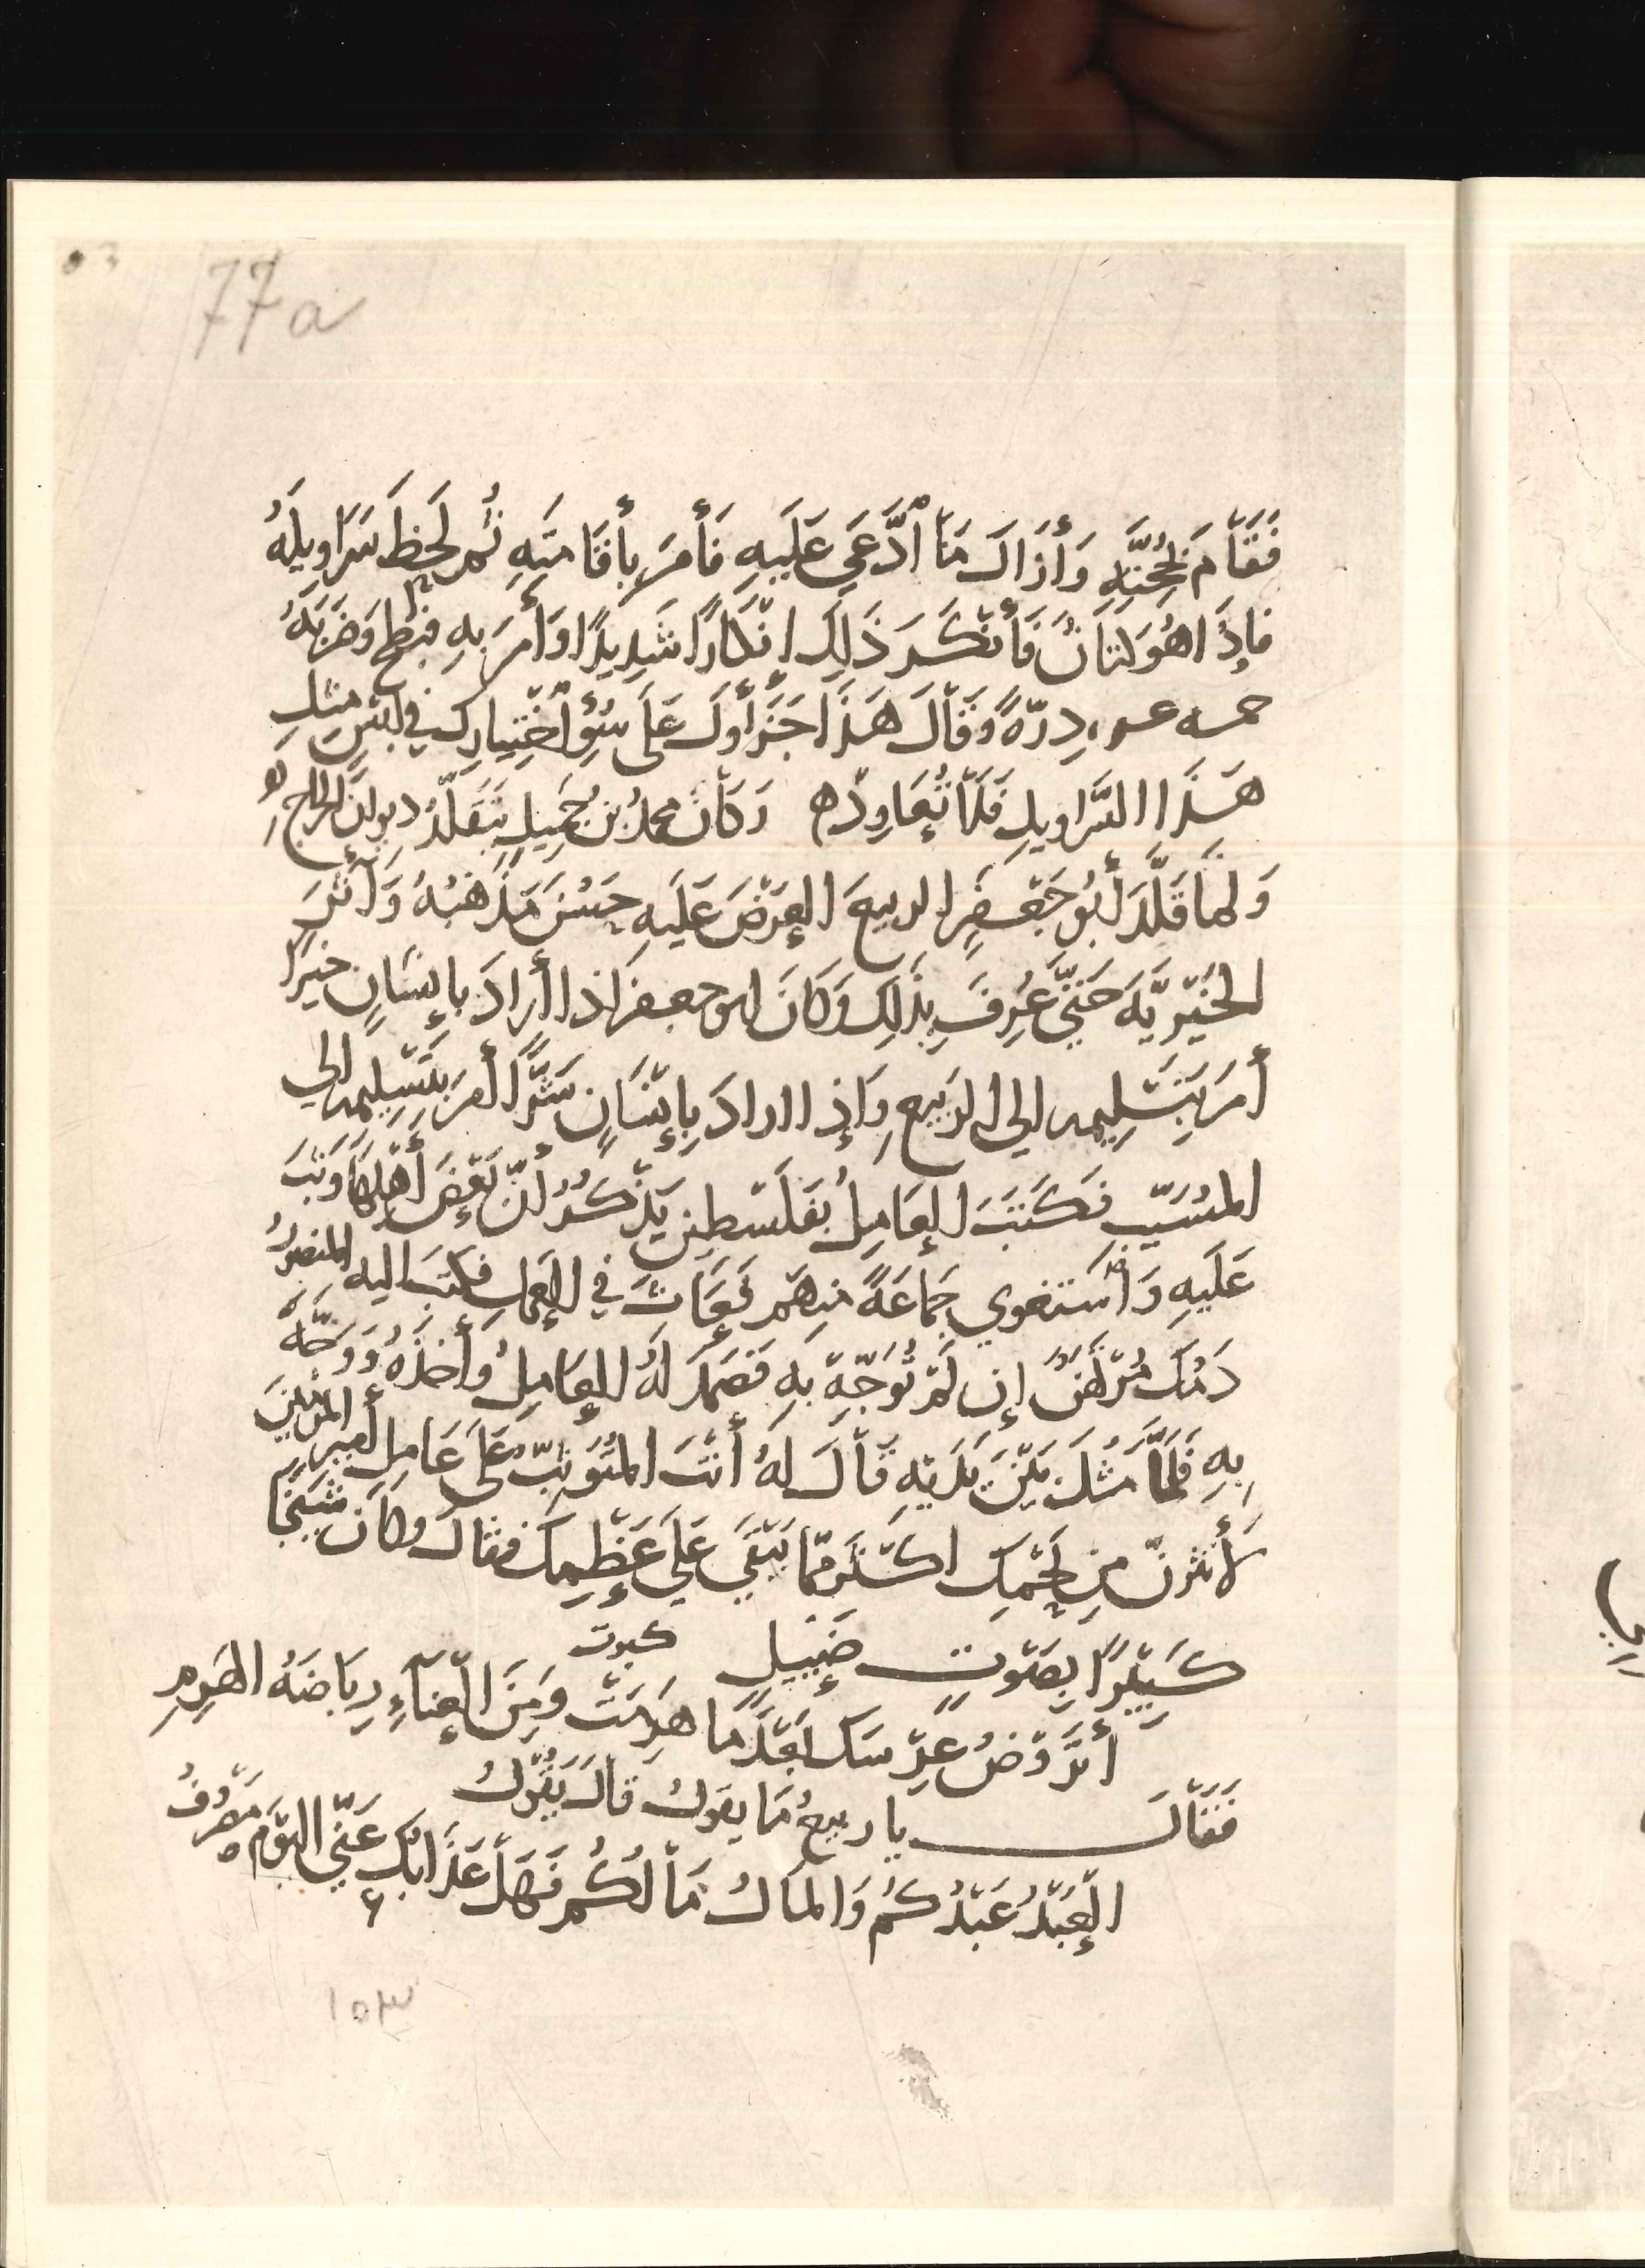 77a
فَقَامَ بِحُجَّتِهِ وَأَزَالَ مَا ٱدَّعَي عَلَيهِ فَأَمَرَ بِأقَامَتِهِ ثُم لَحَظَ سَرَاوِيلَهُ
فإِذَا هُوَ كتانٌ فَأَنْكَرَ ذَلِكَ انْكارًا شَدِيدًا وَأَمَرَ بِهِ فبطح وَضَرَبَهُ
خمسه عسر دِرّةً وَقَالَ هَذَا جَزَأوكَ عَلَى سُوْٓءِ اخْتِيارِك في لبْسِ مثلِ
هَذَا السَّراويلِ فَلَا تُعَاوِدْه وَكَانَ محمدُ بن جَمِيلٍ يَتَقَلَّدُ ديوانَ الخراج لهُ
وَلما قَلَّدَ أَبُو جَعْفَرٍ الربيعَ العَرْضَ عَلَيهِ حَسُنَ مَذهَبُهُ وَآثَرَ
الخَيْريَّةَ حَتيّ عُرِفَ بِذَلِكَ وَكَانَ ابو جعفر اذا أَرَادَ بإِنْسَانٍ خيرًا
أَمَرَ بِتَسْلِيمِه الي الربيع وَإِذا اراد بِإنْسَانٍ شَرًّا أمر بِتَسْلِيمِه الي
المسَيّب فَكَتَبَ العَامِلُ بفَلَسْطِين يَذْكُرُ أنّ بَعْضَ أَهْلِهَا وَثبَ
عَلَيهِ وَاسْتَغوي جَمَاعَةً منهم فَعَاثَ في العَمل فكتبَ اليه المنصورُ
دَمُكَ مُرْتَهَنٌ إِن لَمْ تُوَجِّهْ بِهِ فَصَمَدَ لَهُ العَامِلُ وَأَخذهُ وَوَجَّهَ
بِهِ فَلَمَّا مَثُلَ بَيْنَ يَدَيْهِ قَالَ لهُ أَنْتَ المتُوَثّبُ عَلَى عَامِلِ أمير المؤمنينَ
لأَنْثُرنّ مِن لَحْمِكَ اكْثَر مِمّا يَبْقَي عَلَي عَظْمِكَ فقالَ وكانَ شَيْخًا
كَبِيْرًا بِصَوْتٍ ضَئِيلٍ
كبرت
أَتَرُوضُ عِرْسَكَ بَعْدَمَا هَرِمَتْ وَمِنَ العَنَآءِ رِيَاضَةُ الهَرِمِ
فَقَالَ يا ربيعُ مَا يقول قالَ يَقُولُ
العَبْدُ عَبْدُكُمُ وَالمَالُ مَالُكُم فَهَلْ عَذَابُكَ عَنِّي اليَوْمَ مَصْرُوفُ
١٥٣